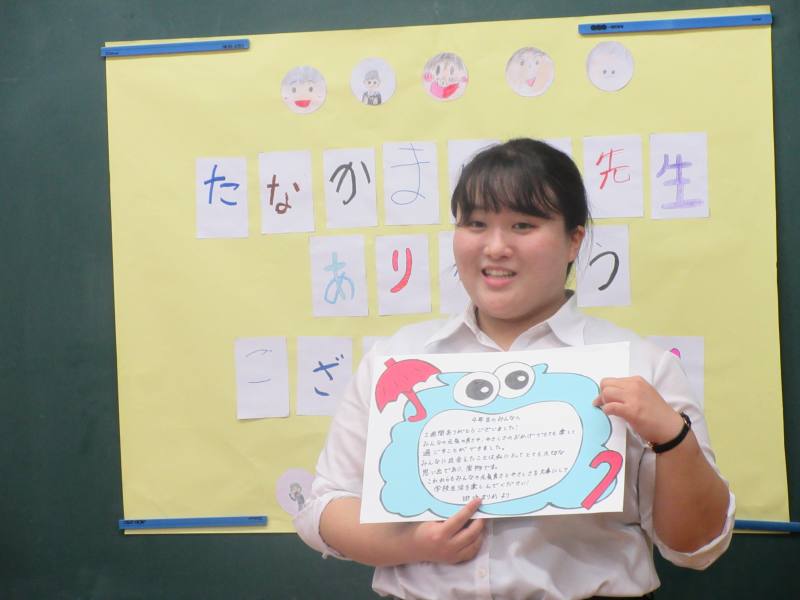 たなかま 先生
あり う
ござ
4年生のみんなへ
2週間ありがとうございました!
みんなの元気の良さや、やさしさのおかげでとても楽しく
過ごすことができました。
みんなに出会えたことは私にとってとても大切な
思い出であり、宝物です。
これからもみんなの元気良さとやさしさを大事にして
学校生活を楽しんでください!
より